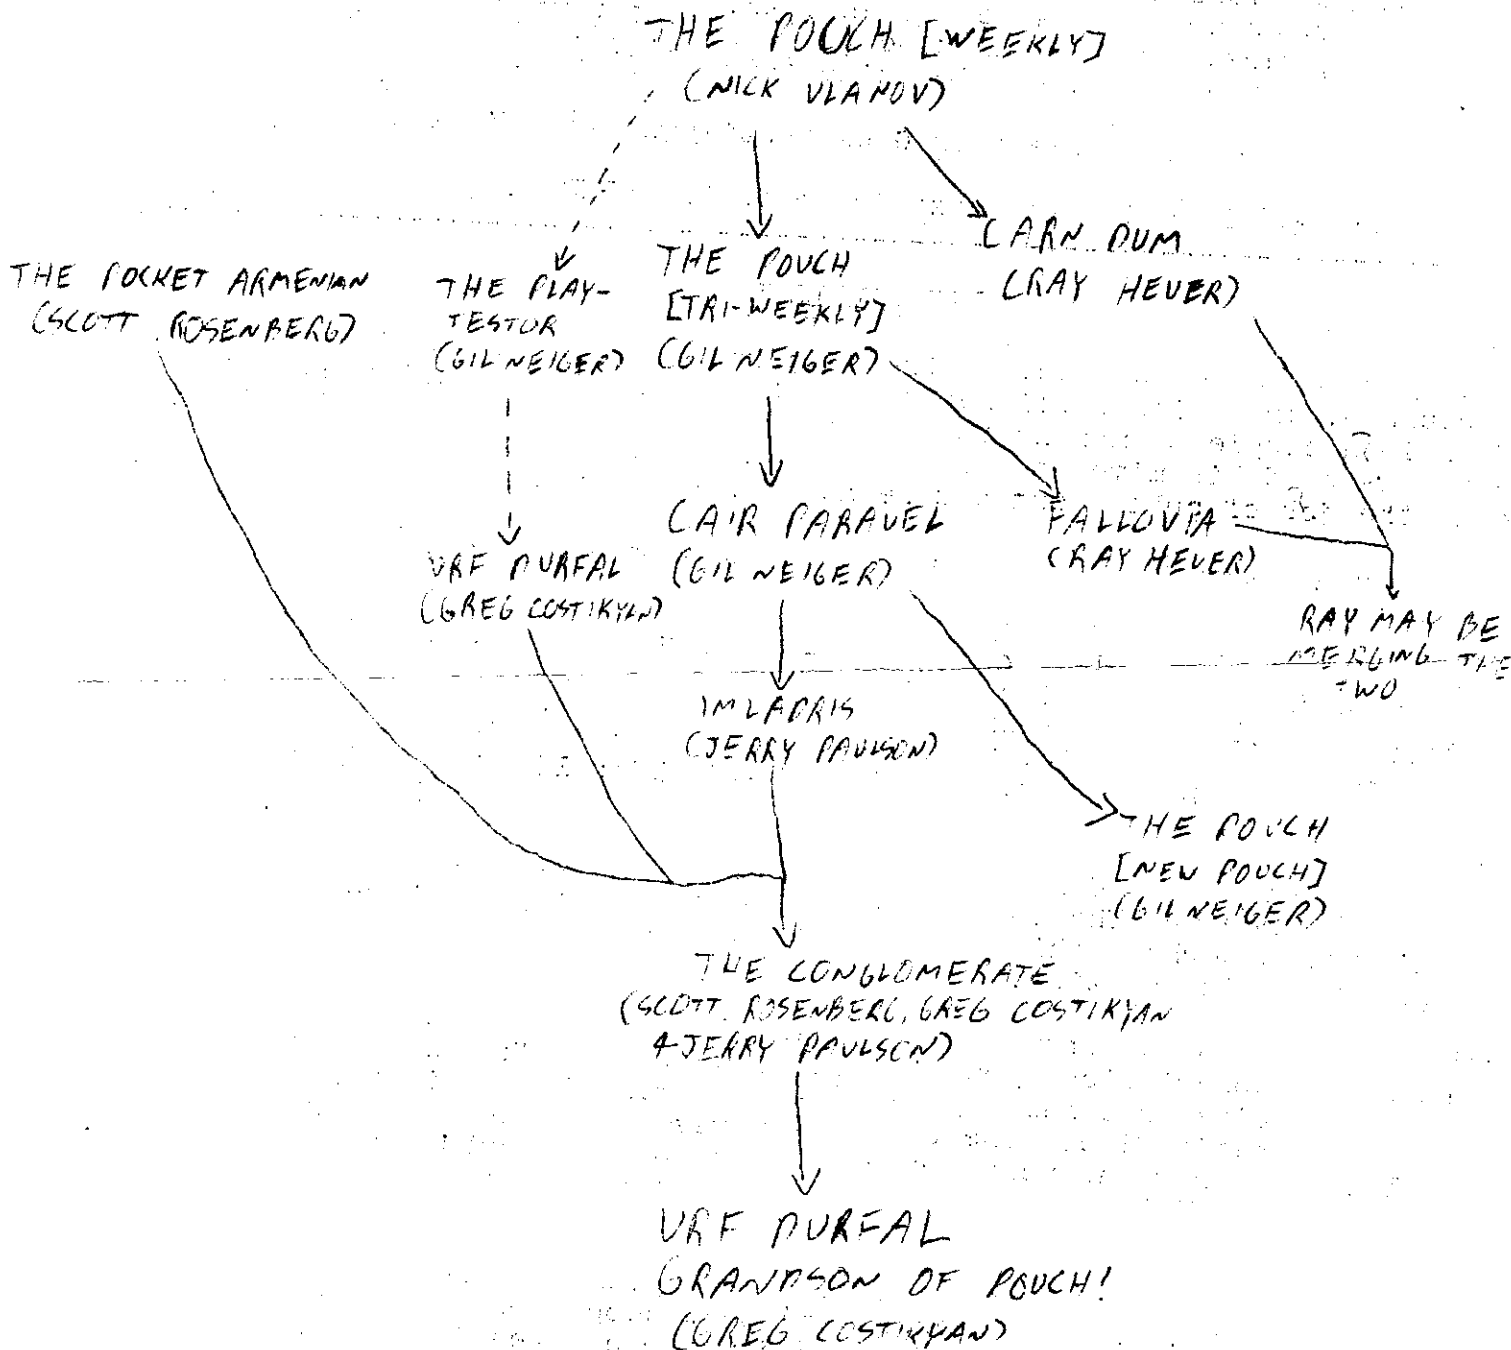 THE POUCH [WEEKLY]
(NICK ULANOV)
THE POCKET ARMENIAN
(SCOTT ROSENBERG)
THE PLAY-
TESTOR
(GIL NEIGER)
THE POUCH
[TRI-WEEKLY]
(GIL NEIGER)
CARN DUM
(RAY HEUER)
URF DURFAL
(GREG COSTIKYAN)
CAIR PARAVEL
(GIL NEIGER)
FALLOVPA
(RAY HEUER)
RAY MAY BE
MERGING THE
TWO
IMLADRIS
(JERRY PAULSON)
THE POUCH
[NEW POUCH]
(GIL NEIGER)
THE CONGLOMERATE
(SCOTT ROSENBERG, GREG COSTIKYAN
& JERRY PAULSON)
URF DURFAL
GRANDSON OF POUCH!
(GREG COSTIKYAN)